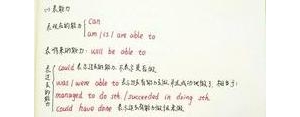 (1) 表能力
表现在的能力 can
am / is / are able to
表将来的能力: will be able to
表过去的能力
could 表示过去的能力, 不表示是否做
was / were able to 表示过去有能力去做, 并且成功地做了, 相当于:
managed to do sth. / succeeded in doing sth.
could have done 表示过去有能力做但未做